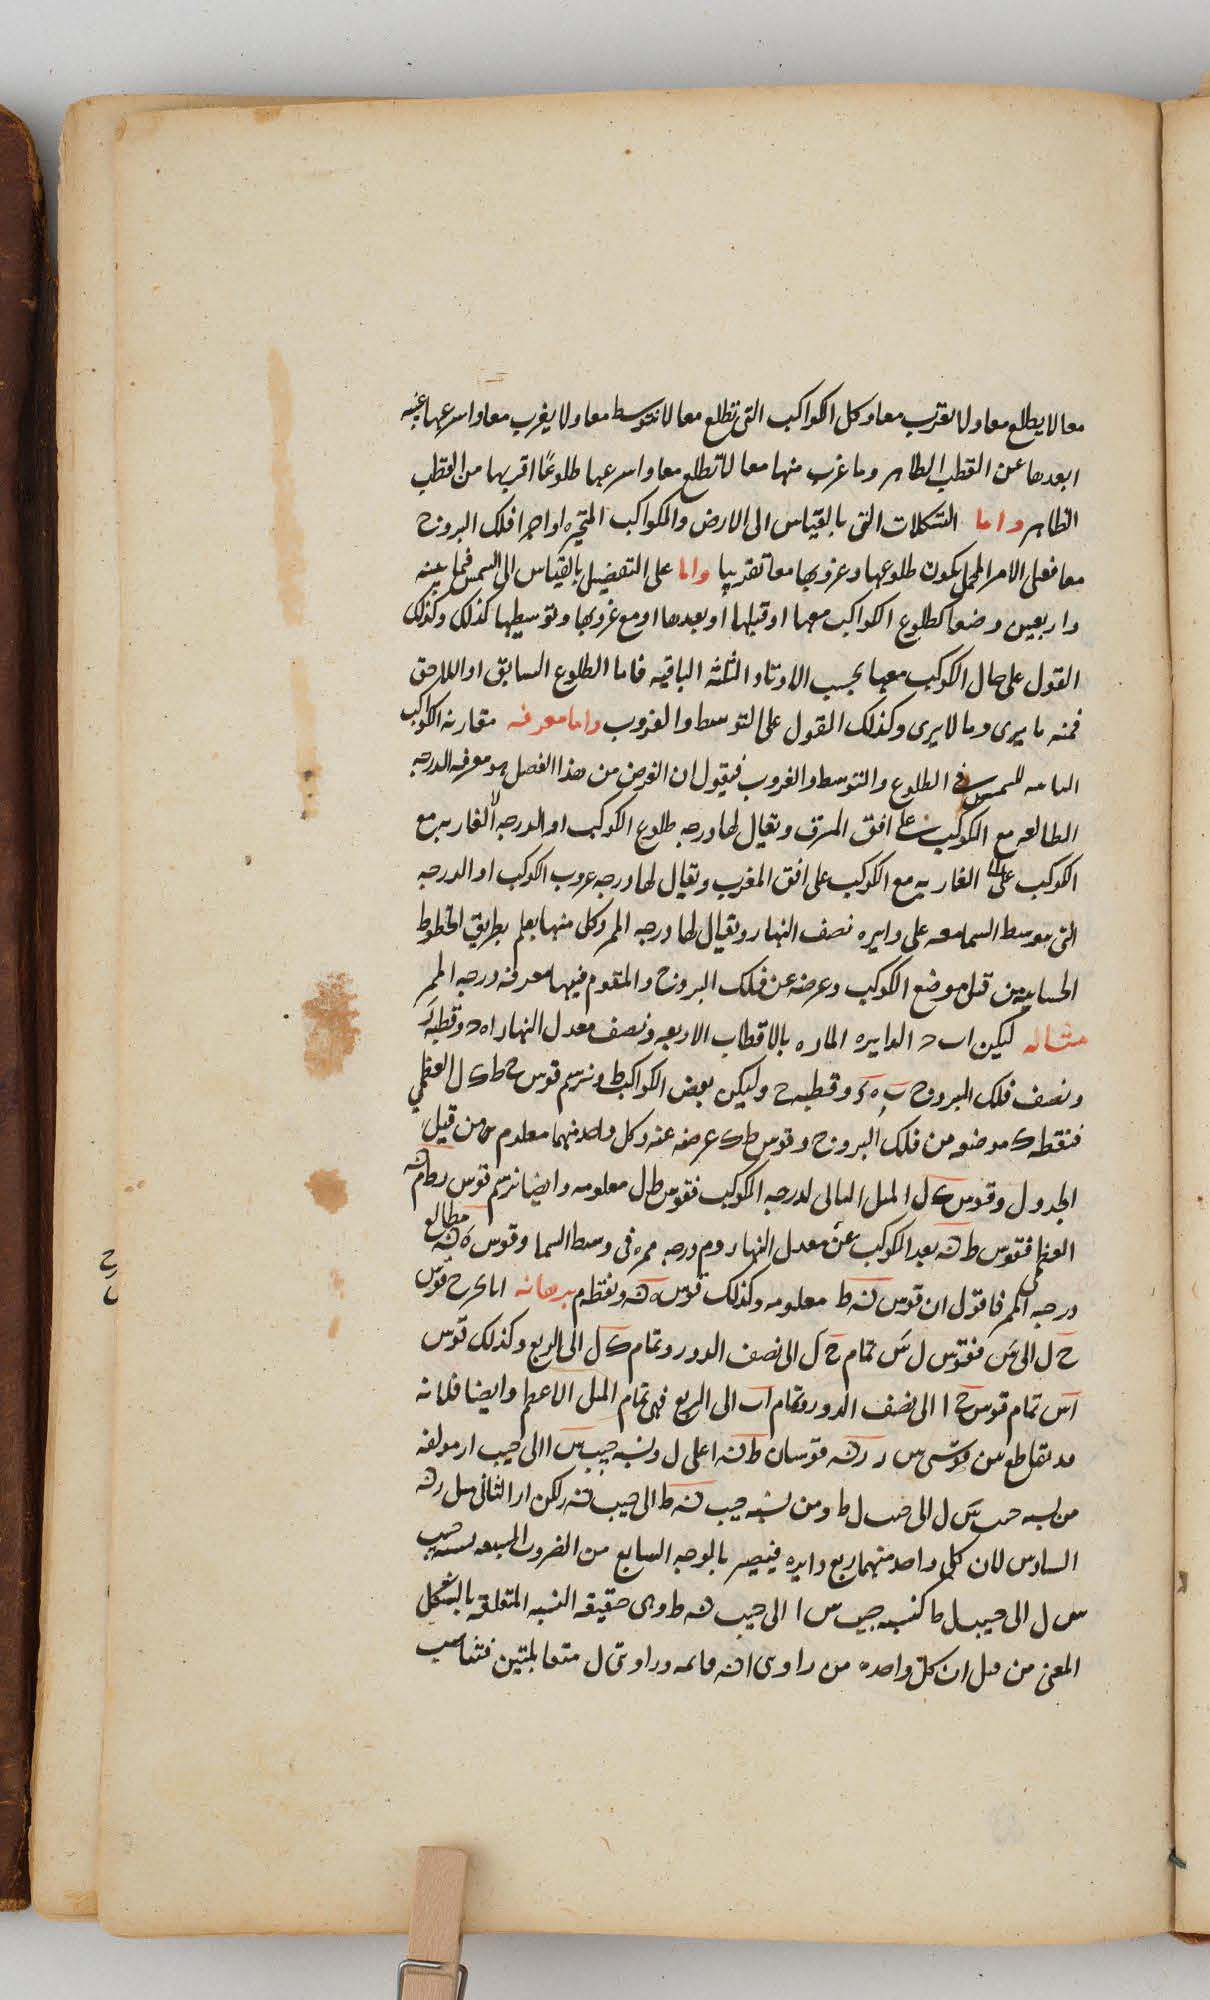 معا لا يطلع معا ولا يغرب معا وكل الكواكب التى تطلع معا لا تتوسط معا ولا يغرب معا واسرعها غيبه
ابعدها عن القطب الظاهر وما غرب منها معا لا تطلع معا واسرعها طلوعًا اقربها من القطب
الظاهر واما التشكلات التى بالقياس الى الارض والكواكب المتحيره او اجزا فلك البروج
معا فعلى الامر المجمل يكون طلوعها وغروبها معا تقريبا واما على التفصيل بالقياس الى الشمس
واربعين وضعا كطلوع الكواكب معها او قبلها او بعدها او مع غروبها وتوسيطها كذلك وكذلك
القول على حال الكوكب معها بحسب الاوتاد الثلثه الباقيه فاما الطلوع السابق او اللاحق
فمنه ما يرى وما لا يرى وكذلك القول على التوسط والغروب واما معرفه مقارنه الكواكب
الثابته للشمس فى الطلوع والتوسط والغروب فيقول ان الغرض من هذا الفصل هو معرفه الدرجه
الطالعه مع الكوكب على افق المشرق ويقال لها درجه طلوع الكوكب او الدرجه الغاربه مع
الكوكب على الغاربه مع الكوكب على افق المغرب ويقال لها درجه غروب الكوكب او الدرجه
التى يتوسط السما معه على دايره نصف النهار ويقال لها درجه الممر وكل منها يعلم بطريق الخطوط
الحسابيه من قبل موضع الكوكب وعرضه عن فلك البروج والمقوم فيها معرفه درجه الممر
مثاله ليكن اب د الدايره الماره بالاقطاب الاربعه ونصف معدل النهار اه د وقطبه ز
ونصف فلك البروج ب ه وقطبه ح وليكن بعض الكواكب ط ونرسم قوس ح ط ك ل العظمى
فنقطه ك موضعه من فلك البروج وقوس ط ك عرضه عنه وكل واحد منهما معلوم من قبل
الجدول وقوس ك ل الميل الثانى لدرجه الكوكب فقوس ط ل معلومه وايضا نرسم قوس ز ط م ن
العظمى فقوس ط ن بعد الكوكب عن معدل النهار و م درجه ممره فى وسط السما وقوس ه ن مطالع
درجه الممر فاقول ان قوس ن ط معلومه وكذلك قوس ه ن ونقطه م برهانه انا نخرج قوس
ح ل الى س فقوس ل س تمام ح ل الى نصف الدور وتمام ك ل الى الربع وكذلك قوس
ا س تمام قوس ح ا الى نصف الدور وتمام اب الى الربع فهى تمام الميل الاعظم وايضا فلانه
قد تقاطع بين قوسى س ر ر ن قوسان ط ن ا على ل ونسبه جيب س ا الى جيب ا ر مولفه
من نسبه جيب س ل الى جيب ل ط ومن نسبه جيب ن ط الى جيب ن ر لكن ا ر الثانى مثل ر ن
السادس لان كل واحد منهما ربع دايره فيصير بالوجه السابع من الضروب السبعه نسبه جيب
س ل الى جيب ل ط كنسبه جيب س ا الى جيب ن ط وهى حقيقه النسبه المتعلقه بالشكل
المغنى من قبل ان كل واحده من زاويتى ا ن قائمه وزاويتى ل متقابلتين فتناسب